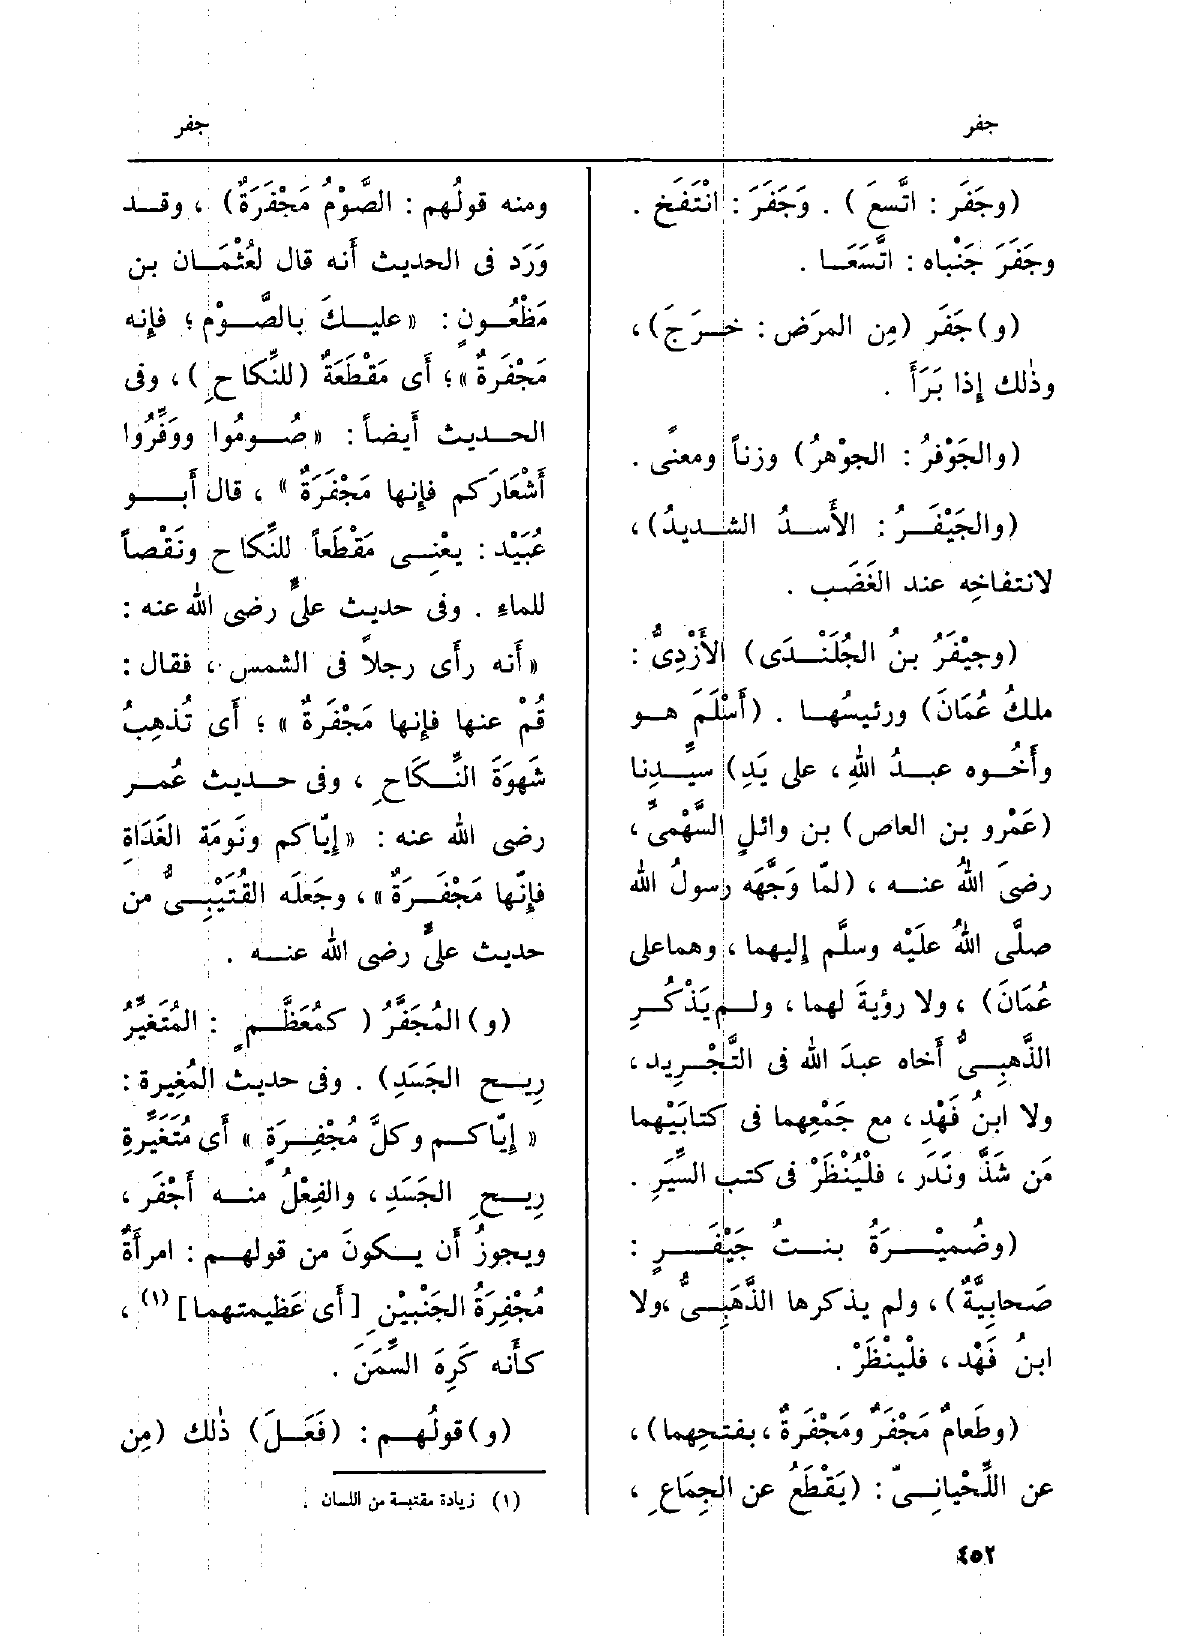 جفر
جفر
(وجَفَر : اتَّسعَ) . وَجَفَرَ : انْتَفَخَ .
وجَفَرَ جَنْباه : اتَّسَعَــا .
(و)جَفَر (مِن المرَض : خــرَجَ)،
وذٰلك إِذا بَرَأَ .
(والجَوْفرُ : الجوْهرُ) وزناً ومعنًى .
(والجَيْفَــرُ : الأَســدُ الشـديدُ)،
لانتفاخِه عند الغَضَـب .
(وجيْفَرُ بنُ الجُلَنْــدَى) الأَزْدِىُّ :
ملكُ عُمَانَ) ورئيسُهـا . (أَسْلَمَ هــو
وأَخُــوه عبــدُ اللهِ ، على يَدِ) سيِّــدِنا
(عَمْرو بن العاص) بن وائلٍ السَّهْمىِّ ،
رضىَ اللهُ عنــه ، (لمّا وَجَّهَه رسولُ الله
صلَّى اللهُ علَيْه وسلَّم إِليهما ، وهماعلى
عُمَانَ) ، ولا رؤيةَ لهما ، ولــم يَذْكُــرِ
الذَّهبِــىُّ أَخاه عبدَ الله فى التَّجْـرِيد ،
ولا ابنُ فَهْدٍ ، مع جَمْعِهما فى كتابَيْهما
مَن شَذَّ ونَدَر ، فلْيُنْظَرْ فى كتب السِّيَرِ .
(وضُمَيْــرَةُ بنــتُ جَيْفَــرٍ :
صَحابِيَّةٌ) ، ولم يذكرها الذَّهَبِــىُّ ،ولا
ابنُ فَهْد ، فلْيُنْظَرْ .
(وطَعامٌ مَجْفَرٌ ومَجْفَرةٌ ، بفتحِهما) ،
عن اللِّحْيانِــىّ : (يَقْطَعُ عن الجِمَاعِ ،
ومنه قولُهم : الصَّوْمُ مَجْفَرَةٌ) ، وقــد
وَرَد فى الحديث أَنه قال لعُثْمَــان بن
مَظْعُــونٍ : «عليــكَ بالصَّــوْم ؛ فإِنه
مَجْفَرةٌ» ؛ أَى مَقْطَعَةٌ (للنِّكاحِ) ، وفى
الحــديث أَيضاً : «صُــومُوا ووَفِّرُوا
أَشْعَارَكم فإِنها مَجْفَرَةٌ» ، قال أَبــو
عُبَيْد : يعْنِــى مَقْطَعاً للنِّكاح ونَقْصاً
للماءِ . وفى حديث علىٍّ رضى الله عنه :
«أَنه رأَى رجلاً فى الشمس ، فقال :
قُمْ عنها فإِنها مَجْفَرةٌ» ؛ أَى تُذهِبُ
شَهْوَةَ النِّــكَاحِ ، وفى حديث عُمــر
رضى الله عنه : «إِيّاكم ونَومَة الغَدَاةِ
فإِنّها مَجْفَــرَةٌ» ، وجَعلَه القُتَيْبِــىُّ من
حديث علىٍّ رضى الله عنــه .
(و) المُجَفَّرُ (كمُعَظَّــمٍ : المُتغيِّرُ
رِيــح الجَسَدِ) . وفى حديث المُغِيرة :
«إِيّاكــم وكلَّ مُجْفِــرَةٍ» أَى مُتَغَيِّرةِ
رِيــحِ الجَسَدِ ، والفِعْلُ منــه أَجْفَر ،
ويجوزُ أَن يــكونَ من قولهــم : امرأَةٌ
مُجْفِرَةُ الجَنْبيْنِ [أَى عَظيمتهما] (١) ،
كأَنه كَرِهَ السِّمَنَ .
(و)قولُهــم : (فَعَــلَ) ذٰلك (مِن
(١) زيادة مقتبسة من اللسان .
٤٥٢